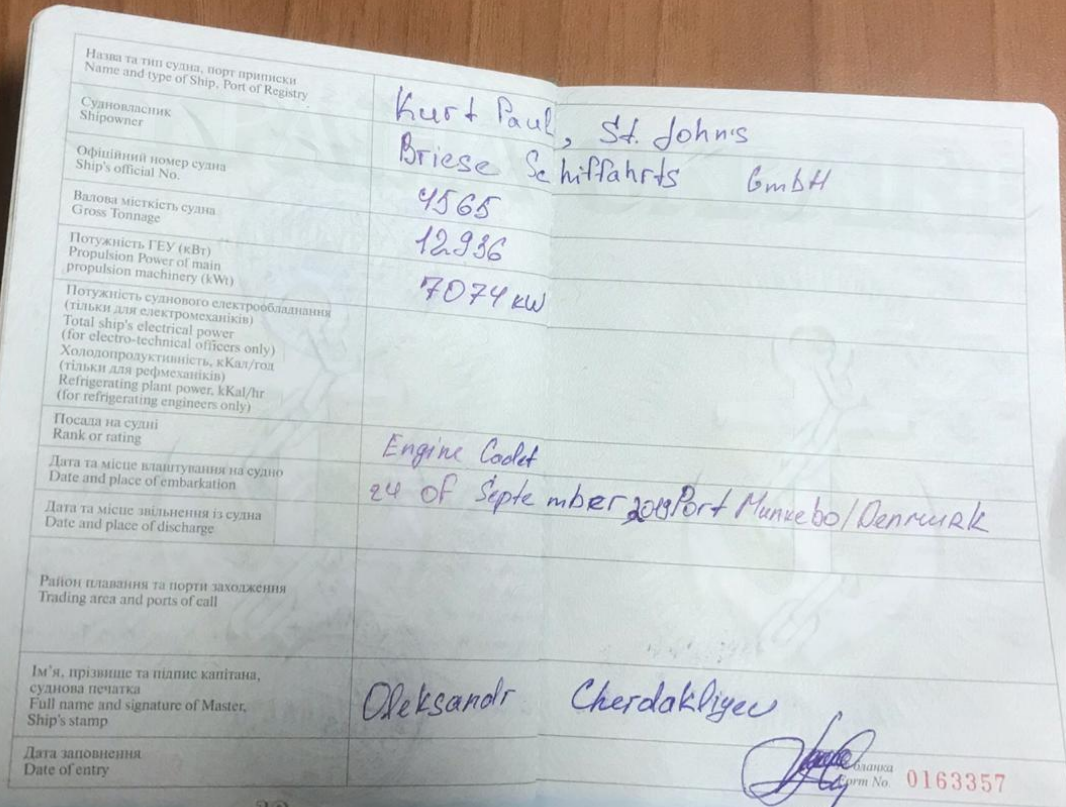 Назва та тип судна, порт приписки
Name and type of Ship, Port of Registry
Kurt Paul, St. John's
Судновласник
Shipowner
Briese Schiffahrts GmbH
Офіційний номер судна
Ship's official No.
4565
Валова місткість судна
Gross Tonnage
12936
Потужність ГЕУ (кВт)
Propulsion Power of main
propulsion machinery (kWt)
7074 kW
Потужність суднового електрообладнання
(тільки для електромеханіків)
Total ship's electrical power
(for electro-technical officers only)
Холодопродуктивність, кКал/год
(тільки для рефмеханіків)
Refrigerating plant power, kKal/hr
(for refrigerating engineers only)
Посада на судні
Rank or rating
Engine Cadet
Дата та місце влаштування на судно
Date and place of embarkation
24 of September 2019 Port Munkebo/Denmark
Дата та місце звільнення із судна
Date and place of discharge
Район плавання та порти заходження
Trading area and ports of call
Ім'я, прізвище та підпис капітана,
суднова печатка
Full name and signature of Master,
Ship's stamp
Oleksandr Cherdakliyev
Дата заповнення
Date of entry
бланка
Form No. 0163357